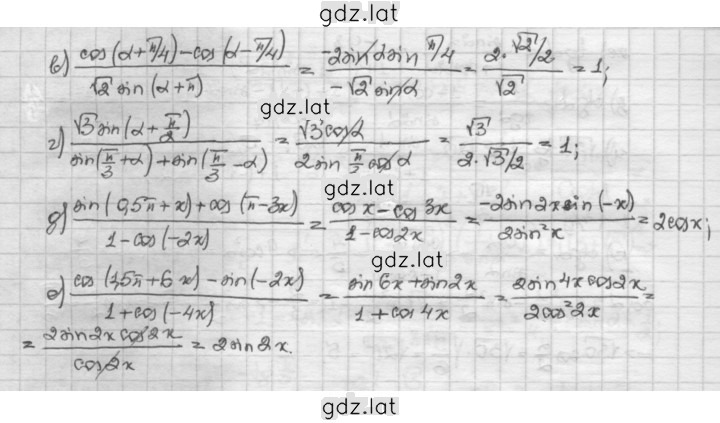 gdz.lat
в) (cos(α+π/4)-cos(α-π/4))/(√2 sin(α+π)) = (-2sinα sin π/4)/(-√2 sinα) = (2·√2/2)/√2 = 1;
gdz.lat
г) (√3 sin(α+π/2))/(sin(π/3+α)+sin(π/3-α)) = (√3 cosα)/(2sin π/3 cosα) = √3/(2·√3/2) = 1;
gdz.lat
д) (sin(0,5π+x)+cos(π-3x))/(1-cos(-2x)) = (cosx-cos3x)/(1-cos2x) = (-2sin2x sin(-x))/(2sin²x) = 2cosx;
gdz.lat
е) (cos(1,5π+6x)-sin(-2x))/(1+cos(-4x)) = (sin6x+sin2x)/(1+cos4x) = (2sin4x cos2x)/(2cos²2x) =
= (2sin2x cos2x)/(cos2x) = 2sin2x.
gdz.lat